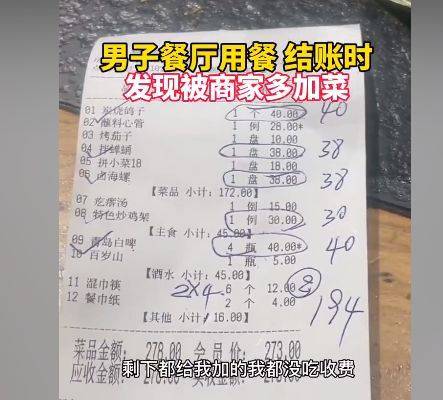 男子餐厅用餐 结账时
发现被商家多加菜
01 炭烧鸽子 1 个 40.00* 40
02 蘸料心管 1 例 28.00*
03 烤茄子 1 盘 10.00
04 拌蝉蛹 1 盘 38.00* 38
05 拼小菜18 1 盘 18.00
06 卤海螺 1 盘 38.00* 38
【菜品 小计:172.00】
07 疙瘩汤 1 例 15.00
08 特色炒鸡架 1 例 30.00 30
【主食 小计:45.00】
09 青岛白啤 4 瓶 40.00* 40
10 百岁山 1 瓶 5.00
【酒水 小计:45.00】
11 湿巾筷 2×4 6 个 12.00 8
12 餐巾纸 2 个 4.00 194
【其他 小计:16.00】
菜品金额: 278.00 会员价: 273.00
应收金额:
剩下都给我加的我都没吃收费